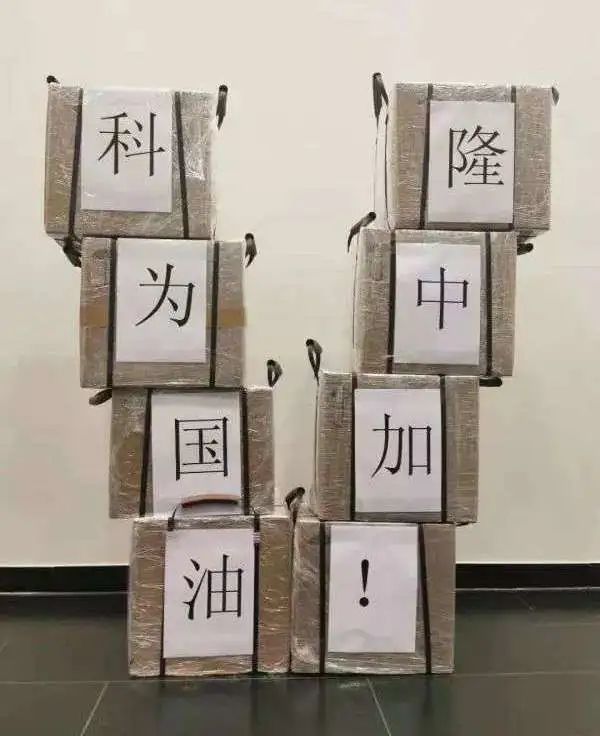 科隆
为中
国加
油！